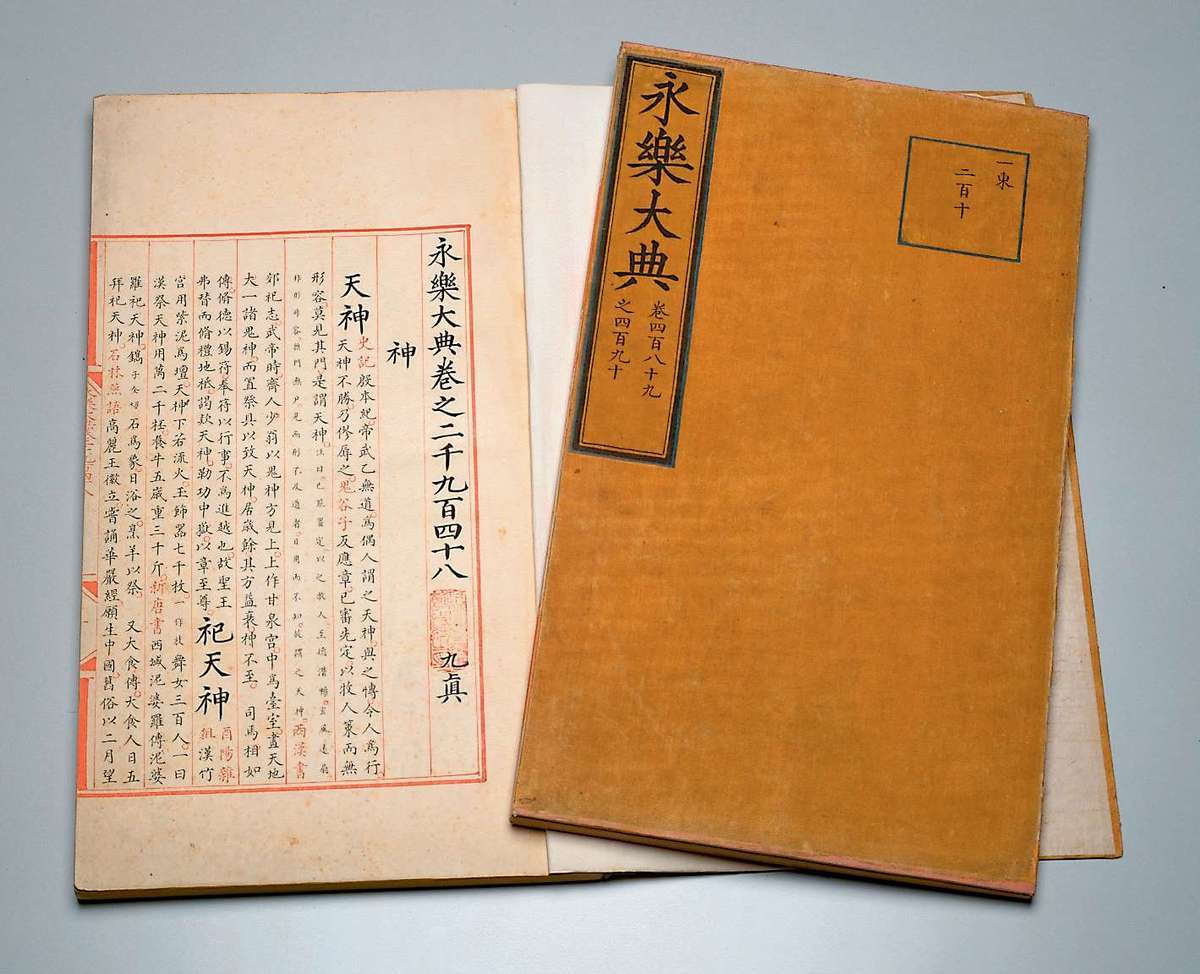 一東
二百十
永樂大典
卷四百八十九
之四百九十
永樂大典卷之二千九百四十八 九真
神
天神
史記殷本紀帝武乙無道爲偶人謂之天神與之博令人爲行
天神不勝乃僇辱之鬼谷子反應章已審先定以牧人策而無
形容莫見其門是謂天神注曰已旣置定以之牧人至德潛暢玄風遠扇
非形非容無門無戶見而形不及道者日用而不知故謂之天神西漢書
郊祀志武帝時齊人少翁以鬼神方見上上作甘泉宮中爲臺室畫天地
大一諸鬼神而置祭具以致天神居歲餘其方益衰神不至司馬相如
傳脩德以錫符奉符以行事不爲進越也故聖王
弗替而脩禮地祇謁款天神勒功中嶽以章至尊
祀天神
酉陽雜
俎漢竹
宮用紫泥爲壇天神下若流火玉飾器七千枚一作枝舞女三百人一曰
漢祭天神用萬二千牲養牛五歲重三千斤新唐書西域泥婆羅傳泥婆
羅祀天神鐫子全切石爲象日浴之烹羊以祭又大食傳大食人日五
拜祀天神石林燕語高麗王徽立嘗誦華嚴經願生中國舊俗以二月望